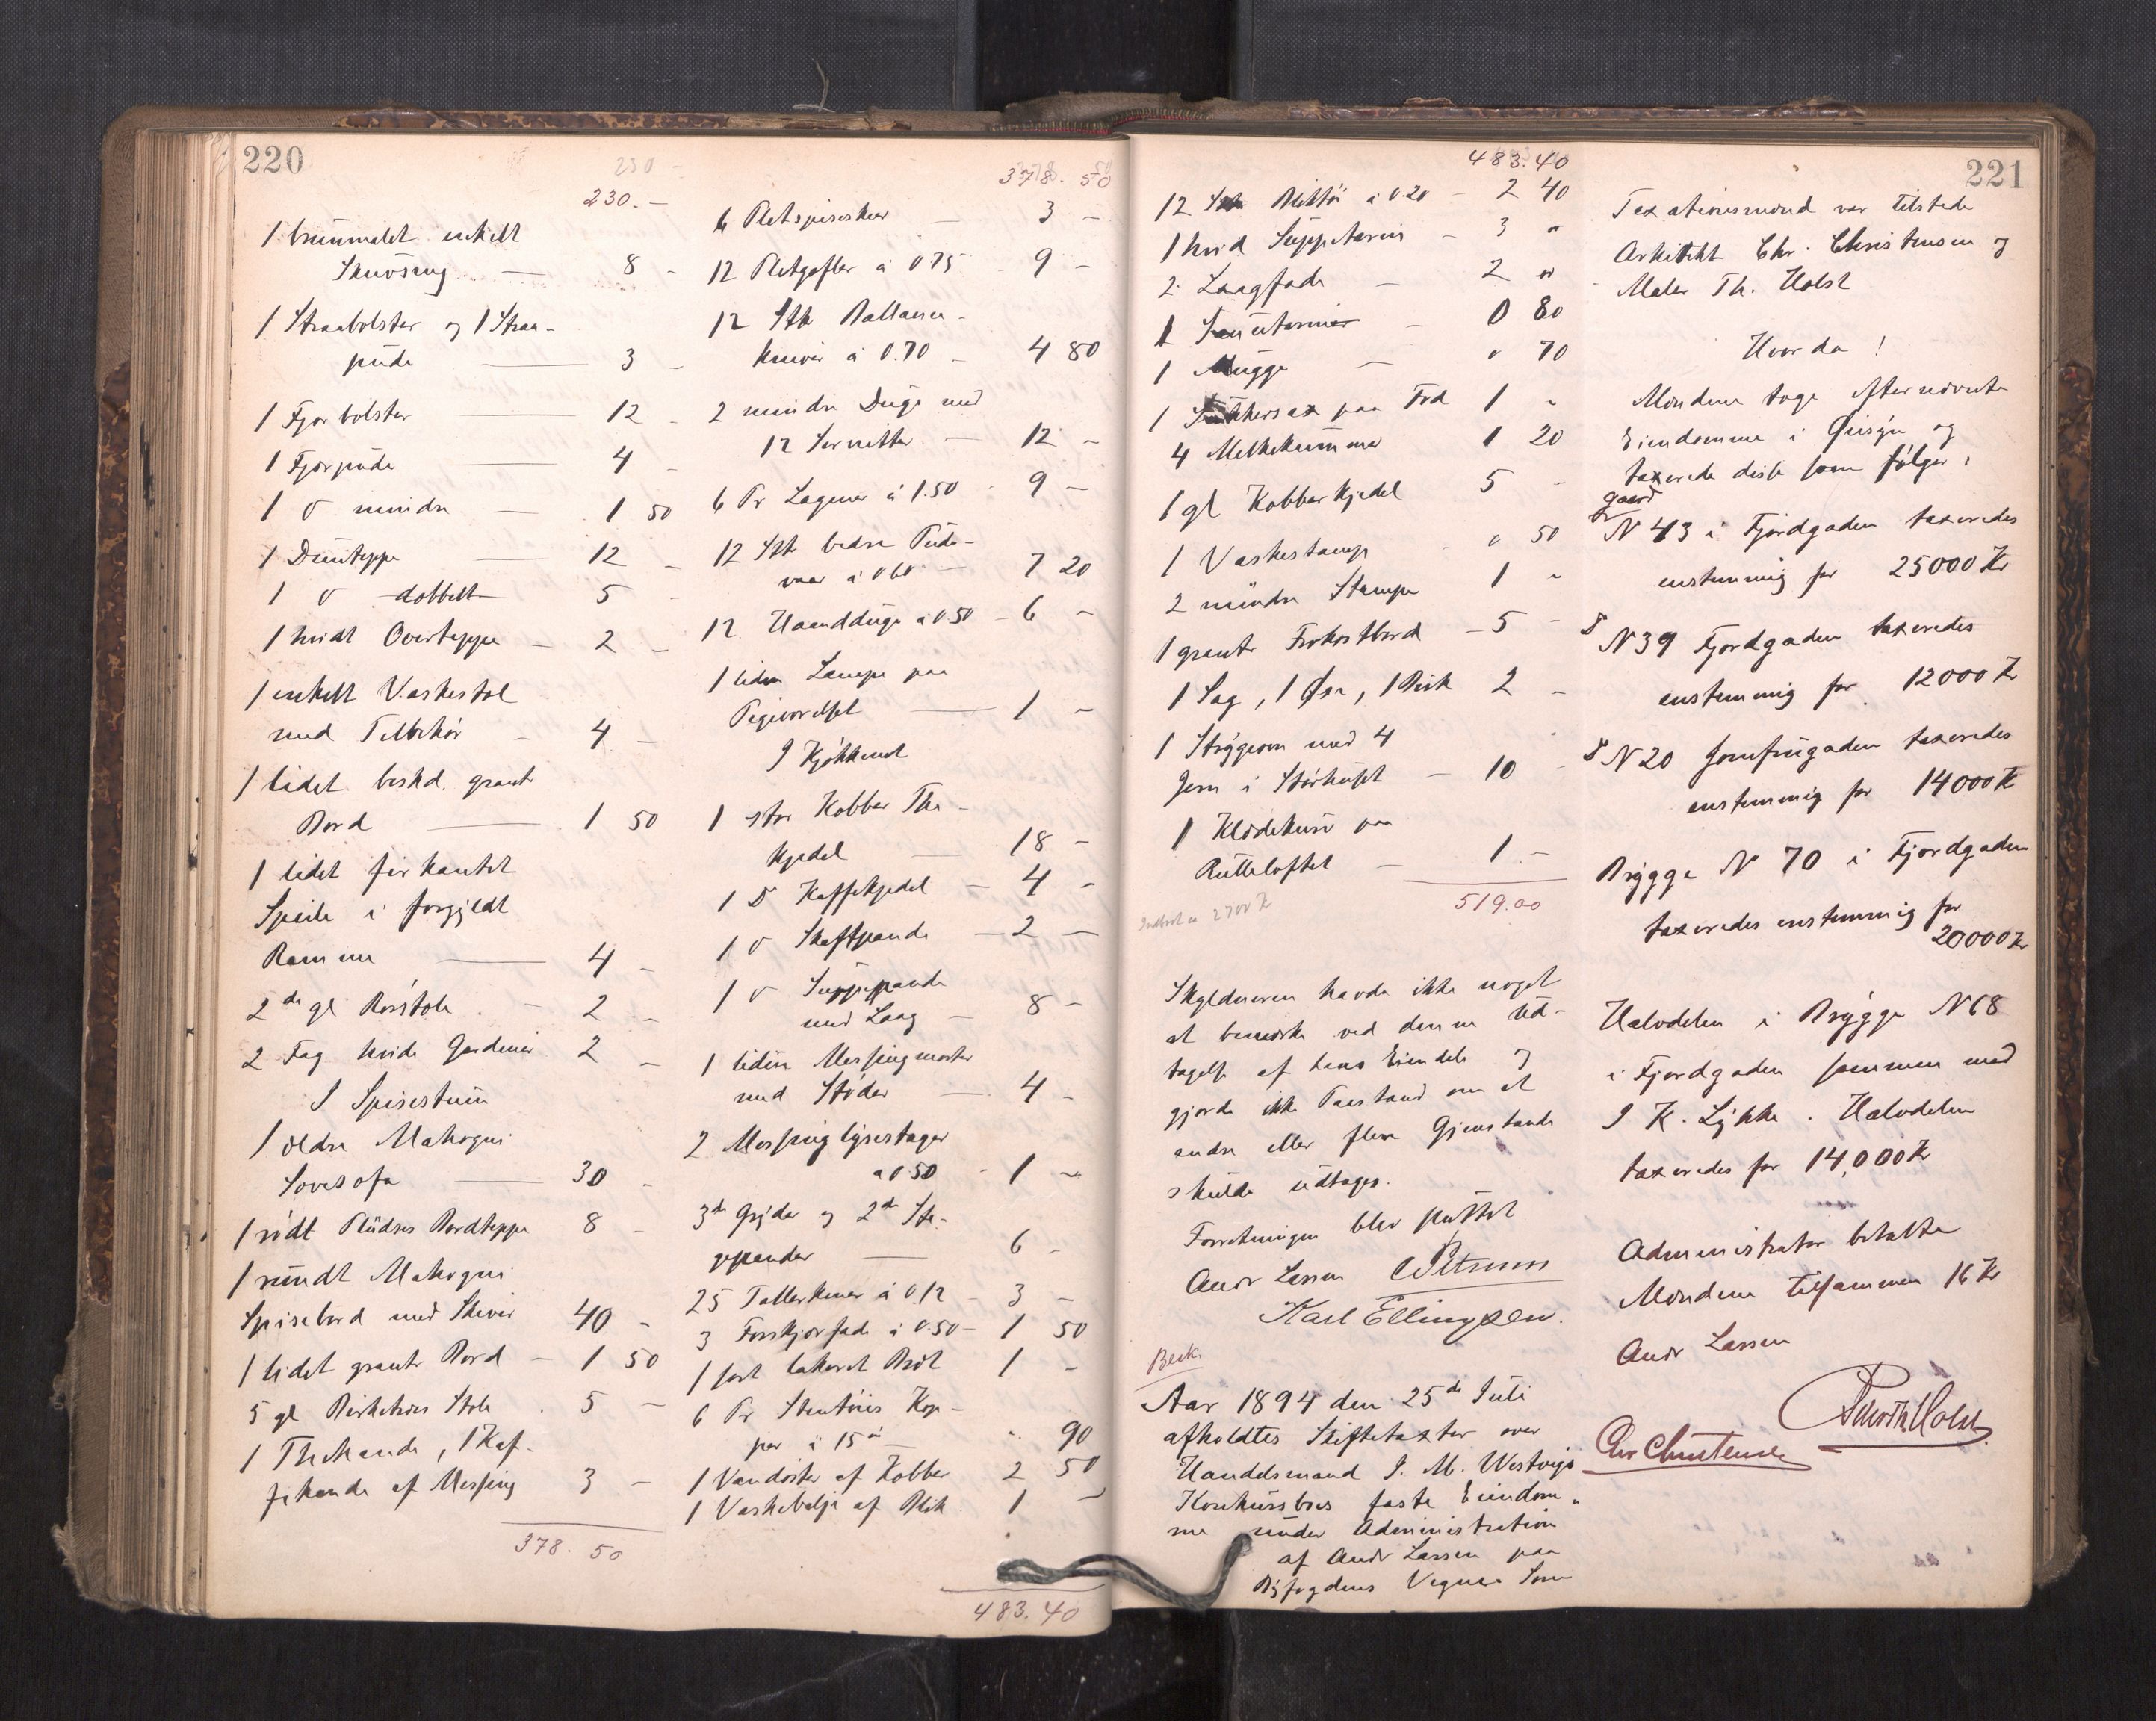 220
230.—
1 brunmalet enkelt
Skuvseng — 8 -
1 Straabolster og 1 Straa-
pude — 3 -
1 Fjorbolster — 12 -
1 Fjorpude — 4 -
1 D mindre — 1 50
1 Duntæppe — 12 -
1 D dobbelt 5 -
1 hvidt Overteppe — 2 -
1 enkelt Vaskestol
med Tilbehör 4 -
1 lidet beskd. graat
Bord — 1 50
1 lidet firkantet
Speile i forgyldt
Ramme — 4 -
2de gl Rörstole — 2 -
2 Fag hvide Gardiner 2 -
I Spisestuen
1 ældre Mahogni
Sovesofa — 30 -
1 rödt Plüdses Bordteppe 8 -
1 rundt Mahogni
Spisebord med Skiver 40 -
1 lidet graat Bord — 1 50
5 gl Birketræs Stole . 5 —
1 Thekande, 1 Kaf-
fekande af Messing 3 —
378. 50
378. 50
6 Pletspiseskeer — 3 -
12 Pletgafler á 0.75 9 -
12 Stk Ballance-
knive á 0.70 - 4 80
2 mindre Duge med
12 Servietter — 12 -
6 Pr Lagener á 1.50 - 9 -
12 Stk bedre Pude-
vaar á 0 60 — 7 20
12 Haandduge á 0.50 - 6 -
1 liden Lampe paa
Pigeværelset — 1 -
I Kjökkenet
1 stor Kobber The-
kjedel — 18 -
1 D Kaffekjedel — 4 -
1 D Skaftpande — 2 —
1 D Suppepande
med Laag — 8 -
1 liden Messingmorter
med Stöder — 4 -
2 Messinglysestager
a 0.50 - 1 -
3de Gryder og 2de Ste-
gepander — 6 -
25 Tallerkener á 0.12 - 3 -
3 Forskjærfade á 0.50 - 1 50
1 sort lakeret Bröt 1 -
6 Pr Stentöis Kop-
per á 15 ö - " 90
1 Vandöster af Kobber 2 50
1 Vaskebalje af Blik 1 -
483. 40
221
483. 40
12 Stk Blittöi á 0.20 — 2 40
1 hvid Suppeterrin — 3 "
2 Laagfade — 2 "
1 — 0 80
1 Mugge — " 70
1 Sukkersax paa Fod 1 -
4 Melkekummer 1 20
1 gl Kobberkjedel 5 -
1 Vaskestamp . " 50
2 mindre Stampe 1 "
1 graat Frokostbord - 5 -
1 Sag, 1 Öxe, 1 Bisk 2 -
1 Strygeovn med 4
Jern i Störhuset — 10 -
1 Klædekurv paa
Rulleloftet — 1 -
519.00
2700 Kr
Skyldneren havde ikke noget
at bemærke ved denne Ud-
tagelse af hans Eiendele og
gjorde ikke Paastand om at
andre eller flere Gjenstande
skulde udtages.
Forretningen blev sluttet
Andr Larsen
Karl Ellingsen.
Besk.
Aar 1894 den 25de Juli
afholdtes Skiftetaxter over
Handelsmand J. M. Westvigs
Konkursbos faste Eiendom-
me under Administration
af Andr Larsen paa
Byfogdens Vegne. Som
Taxationsmænd var tilstede
Arkitekt Chr. Christensen og
Maler Th. Holst
Hvorda!
Mændene toge efternævnte
Eiendomme i Öiesyn og
taxerede disse som fölger:
gaard
N 43 i Fjordgaden taxeredes
enstemmig for 25000 Kr
D N 39 Fjordgaden taxeredes
enstemmig for 12000 Kr
D N 20 Jomfrugaden taxeredes
enstemmig for 14000 Kr
Brygge N 70 i Fjordgaden
taxeredes enstemmig for
20000 Kr
Halvdelen i Brygge N 68
i Fjordgaden sammen med
I K. Lykke. Halvdelen
taxeredes for 14,000 Kr
Administrator betalte
Mændene tilsammen 16 Kr
Andr Larsen
Th. Holst
Chr Christensen